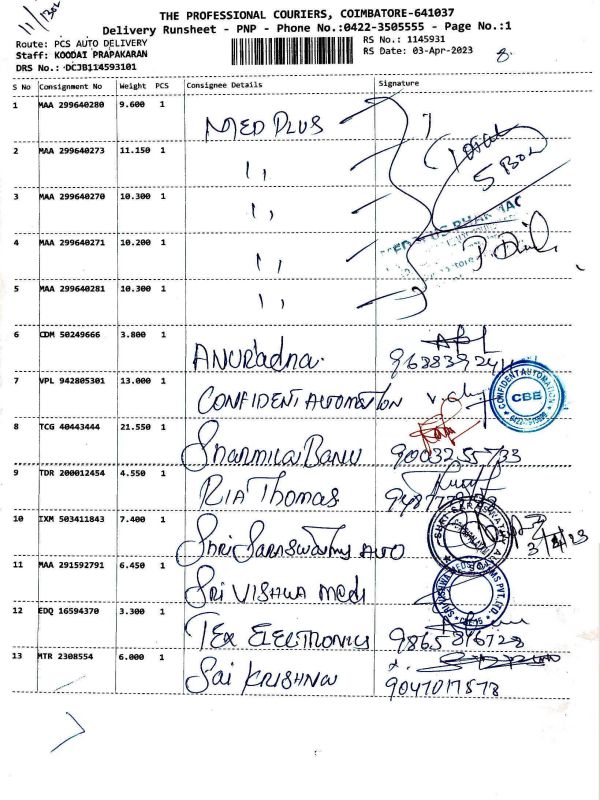 THE PROFESSIONAL COURIERS, COIMBATORE-641037
Delivery Runsheet - PNP - Phone No.:0422-3505555 - Page No.:1
Route: PCS AUTO DELIVERY
RS No.: 1145931
Staff: KOODAI PRAPAKARAN
RS Date: 03-Apr-2023
8.
DRS No.: DCJB114593101
S No Consignment No Weight PCS Consignee Details Signature
1 MAA 299640280 9.600 1 MED PLUS
2 MAA 299640273 11.150 1 ,,
Total
5 Box
3 MAA 299640270 10.300 1 ,,
4 MAA 299640271 10.200 1 ,,
5 MAA 299640281 10.300 1 ,,
6 CDM 50249666 3.800 1 ANURADHA.
7 VPL 942805301 13.000 1 CONFIDENT AUTOMATION
CONFIDENT AUTOMATION
CBE
8 TCG 40443444 21.550 1 Sharmila Banu 9003255733
9 TDR 200012454 4.550 1 RIA Thomas
10 IXM 503411843 7.400 1 Shri Saraswathy AUTO
3/4/23
11 MAA 291592791 6.450 1 Sri VISHWA Medi
12 EDQ 16594370 3.300 1 TEX ELECTRONICS 9865846728
13 MTR 2308554 6.000 1 Sai KRISHNA